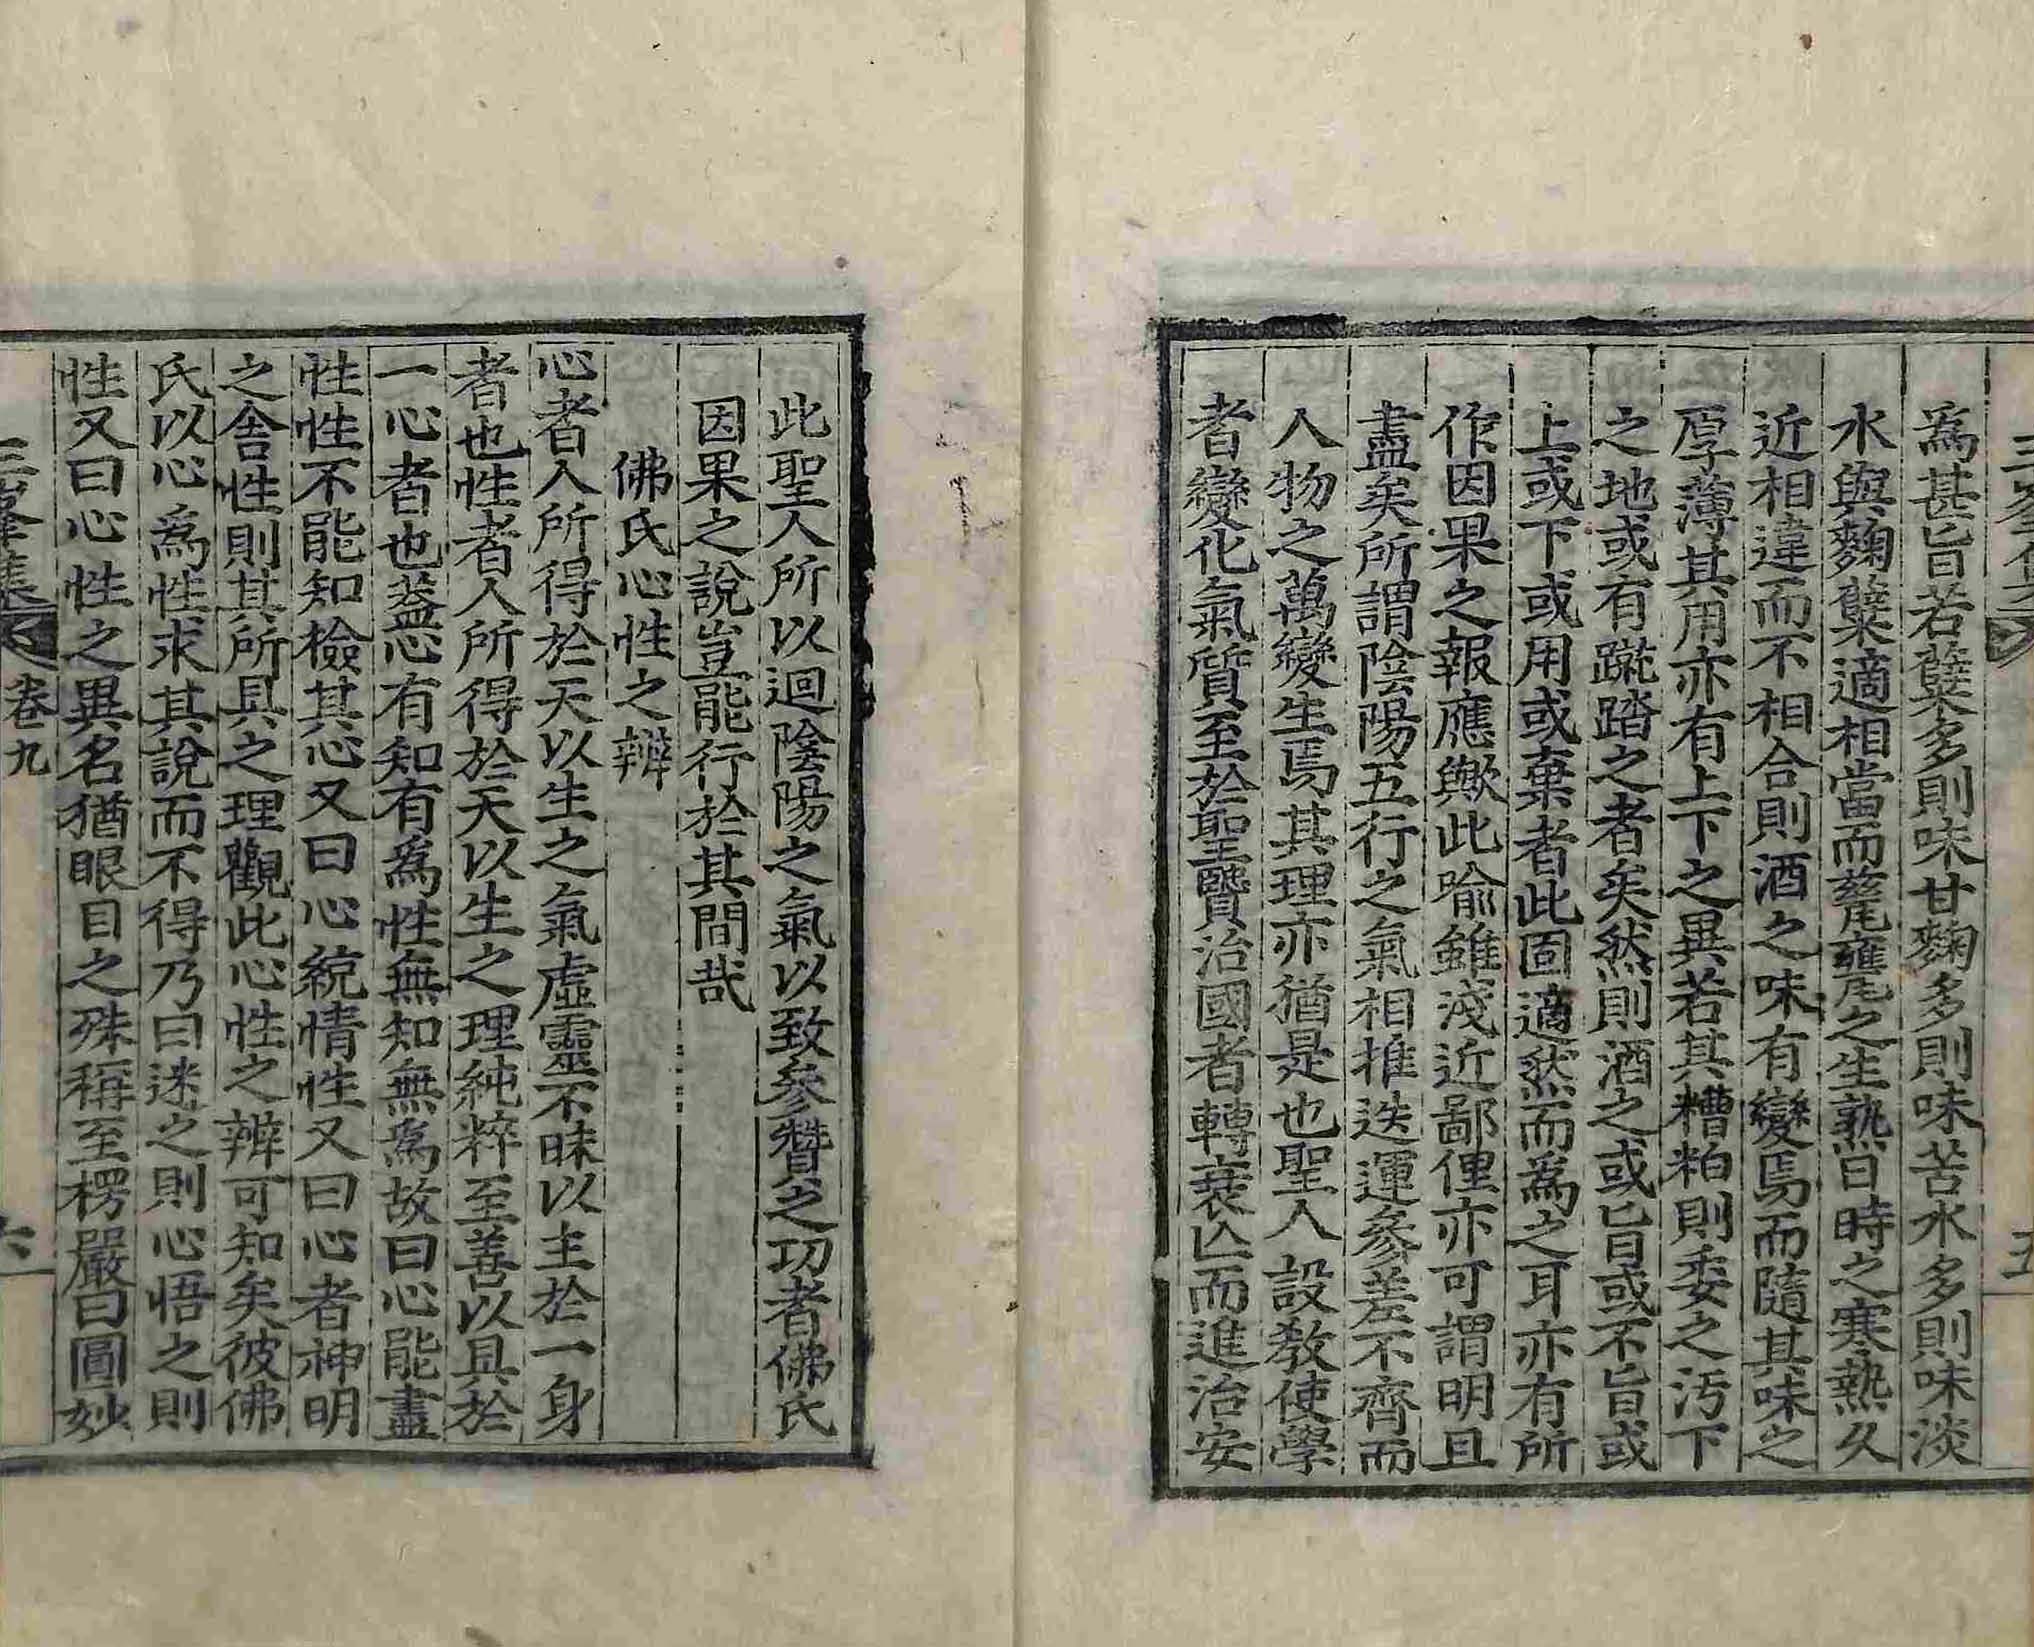 三峯集
五
爲甚旨若蘖多則味甘麴多則味苦水多則味淡
水與麴蘖適相當而甆甕之生熟日時之寒熱久
近相違而不相合則酒之味有變焉而隨其味之
厚薄其用亦有上下之異若其糟粕則委之汚下
之地或有蹴踏之者矣然則酒之或旨或不旨或
上或下或用或棄者此固適然而爲之耳亦有所
作因果之報應歟此喩雖淺近鄙俚亦可謂明且
盡矣所謂陰陽五行之氣相推迭運參差不齊而
人物之萬變生焉其理亦猶是也聖人設敎使學
者變化氣質至於聖賢治國者轉衰亾而進治安
此聖人所以迴陰陽之氣以致參贊之功者佛氏
因果之說豈能行於其間哉
佛氏心性之辨
心者人所得於天以生之氣虛靈不昧以主於一身
者也性者人所得於天以生之理純粹至善以具於
一心者也盖心有知有爲性無知無爲故曰心能盡
性性不能知檢其心又曰心統情性又曰心者神明
之舍性則其所具之理觀此心性之辨可知矣彼佛
氏以心爲性求其說而不得乃曰迷之則心悟之則
性又曰心性之異名猶眼目之殊稱至楞嚴曰圓妙
三峯集 卷九 六